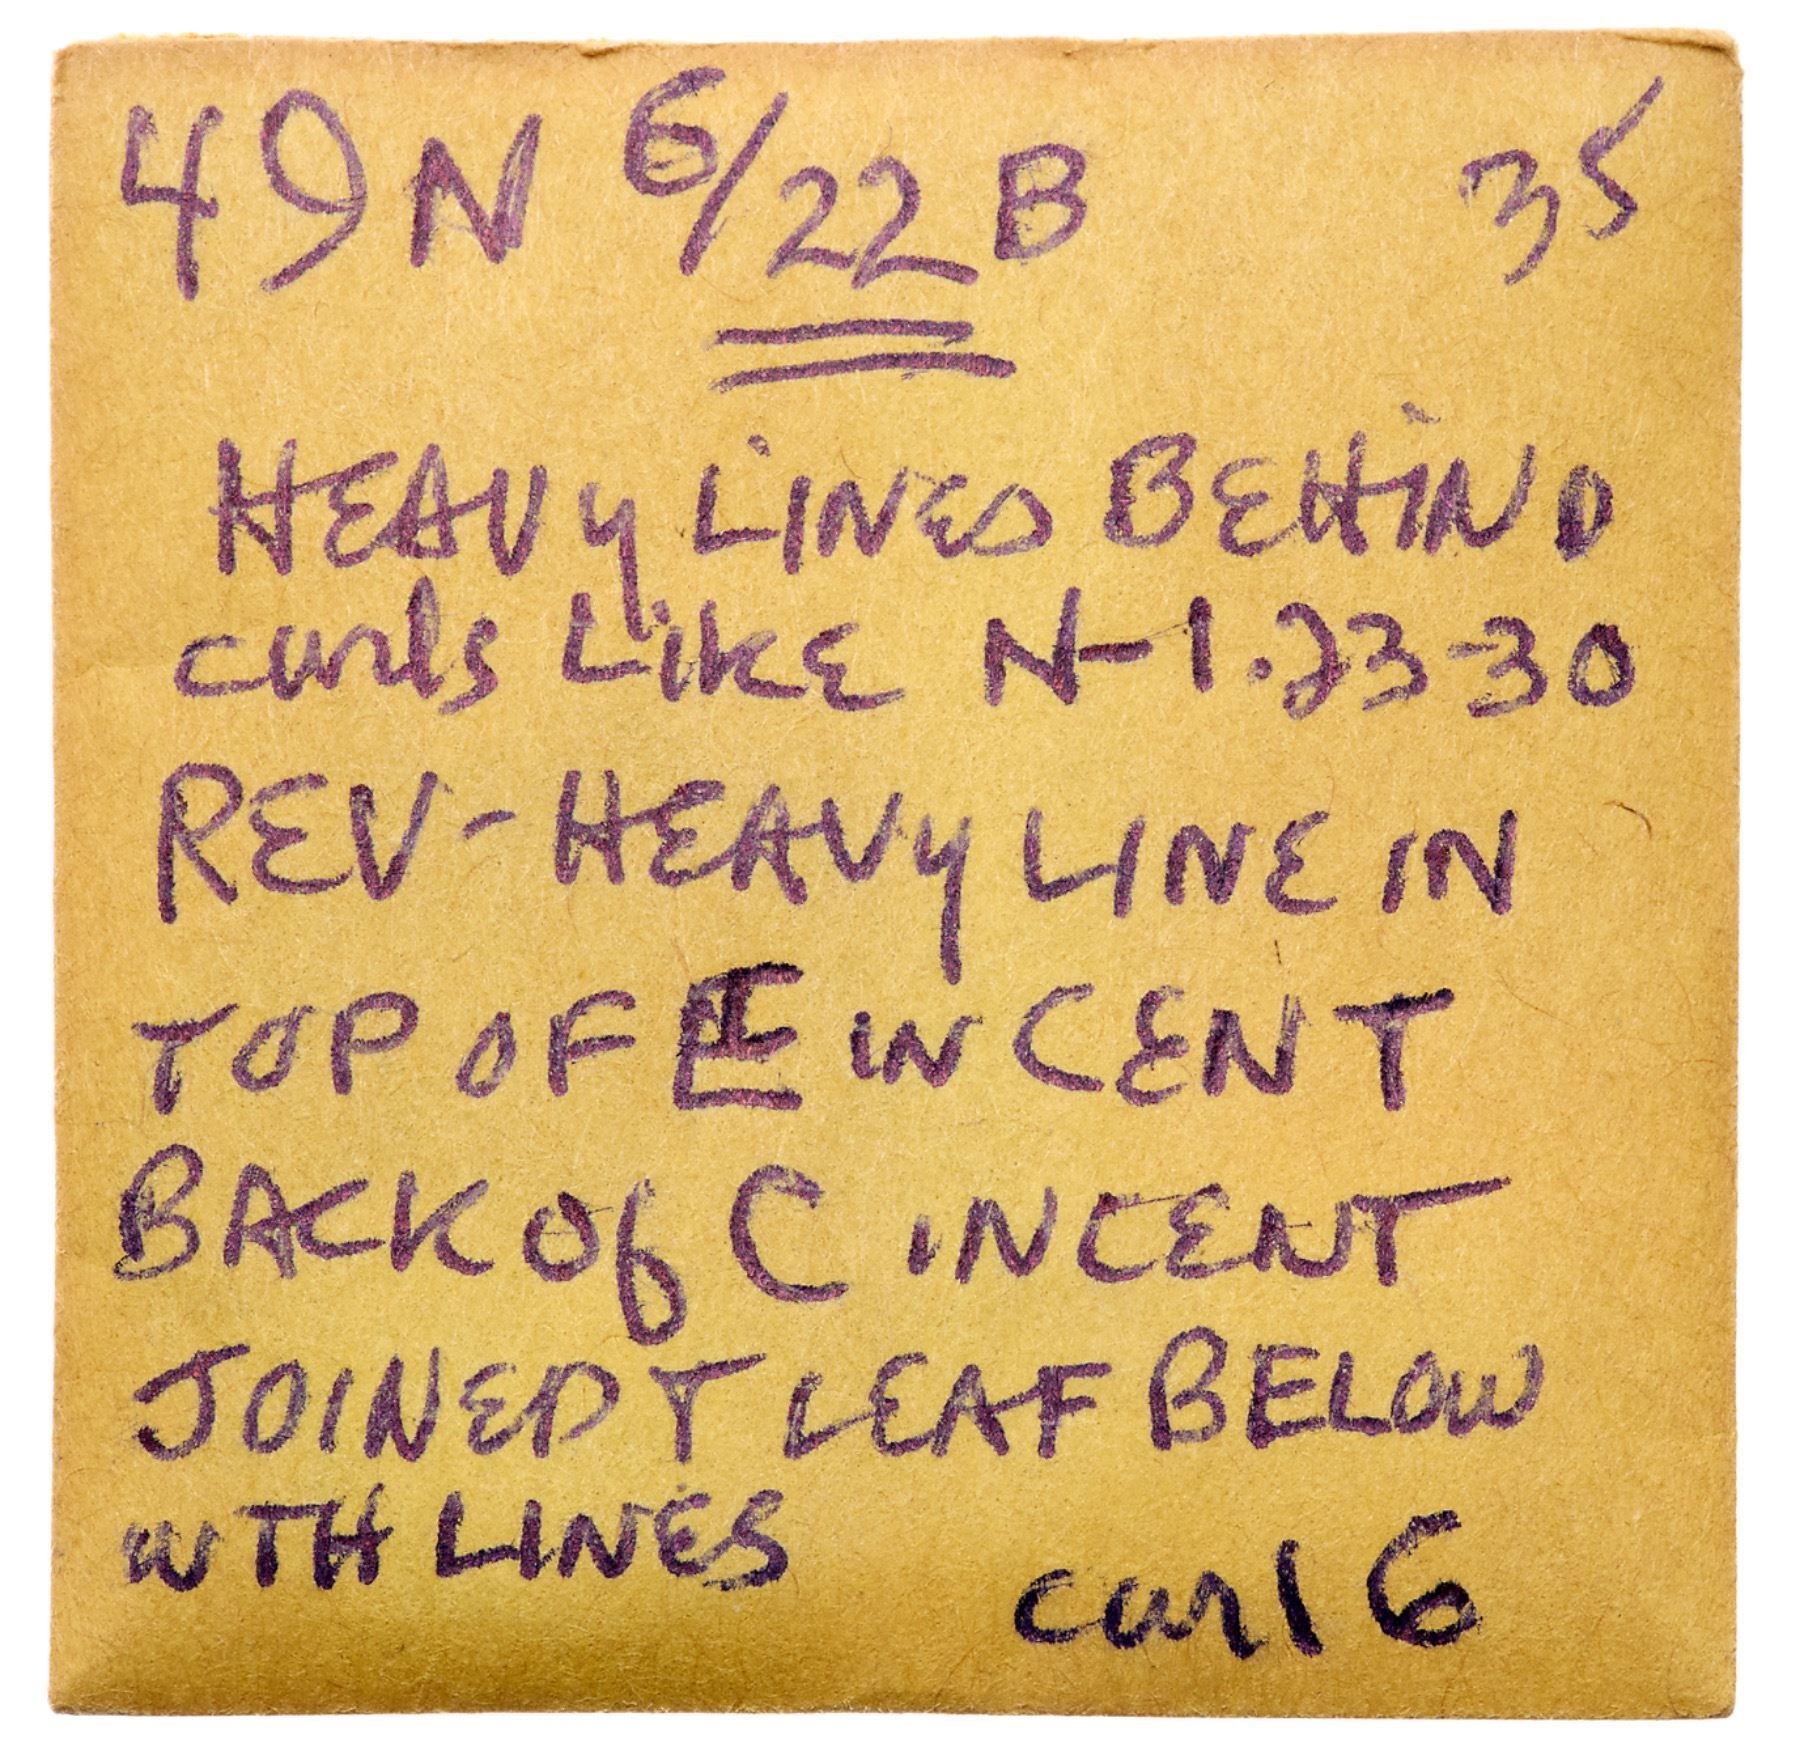 49 N 6/22 B 35
HEAVy LINES BEHIND
curls LiKE N-1.23-30
REV- HEAVy LINE IN
TOP OF E IN CENT
BACK Of C IN CENT
JOINED T LEAF BELOW
WTH LINES
curl 6